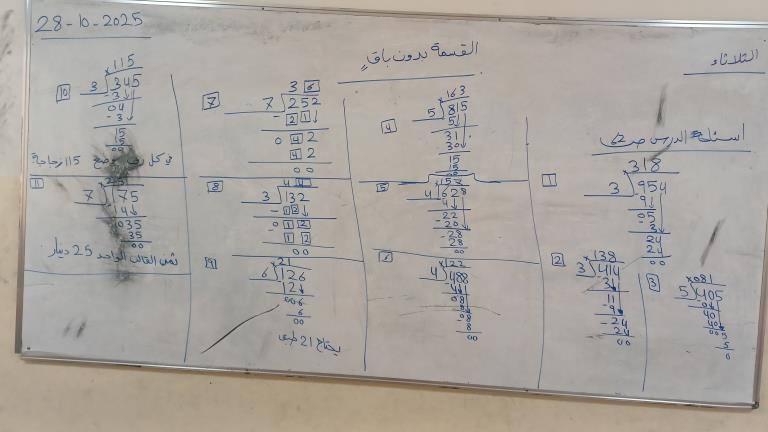 28-10-2025
الثلاثاء
القسمة بدون باقٍ
اسئلة الدرس ص 62
1
318
3 954
-9
05
-3
24
24
00
2
138
3 414
-3
11
-9
-24
24
00
3
081
5 405
-0
40
40
5
5
0
4
163
5 815
5
31
30
15
15
00
5
157
4 628
4
-22
-20
-28
28
00
6
122
4 488
-4
08
8
8
00
7
36
7 252
- 21
0 4 2
4 2
0 0
8
44
3 132
- 12
0 1 2
1 2
0 0
9
21
6 126
12
006
6
00
يحتاج 21
10
115
3 345
-3
04
-3
15
15
00
في كل رف 115 زجاجة
11
7 175
14
035
35
00
ثمن القالب الواحد 25 دينار